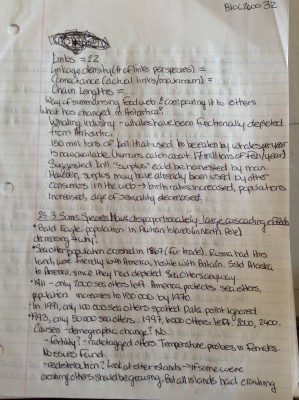 BIOL2600 32
Links = 22
Linkage density (# of links per species) =
Connectance (actual links/maximum) =
Chain Lengths =
Way of summarising food web & comparing it to others
What has changed in Antarctica?
Whaling industry - whales have been functionally depleted
from Antarctic.
150 mill tons of krill that used to be eaten by whales per year
is now available (humans catch about 17 mill tons of fish/year)
Suggested krill "surplus" could be harvested by man.
However, surplus may have already been used by other
consumers in the web → birth rates increased, populations
increased, age of sexuality decreased.
25.3 Some Species Have disproportionately large cascading effects
Bald Eagle population in Islands (North Pole)
decreasing - why?
Sea otter population crashed in 1867 (fur trade). Russia had this
land, were friendly with America, hostile with Britain. Sold Alaska
to America, since they had depleted sea otters anyway
1911 - only 2000 sea otters left. America protects sea otters,
population increases to 100 000 by 1970.
In 1991, only 100 000 sea otters spotted. Data point ignored
1993, only 50 000 sea otters. 1997, 6000 otters left. 2000, 2400.
Causes - demographic change? No.
- fertility? - radiotagged otters. Temperature probes in females.
No issues found
- redistribution? Look at other islands → if some were
crashing others should be growing. But all islands had crashing